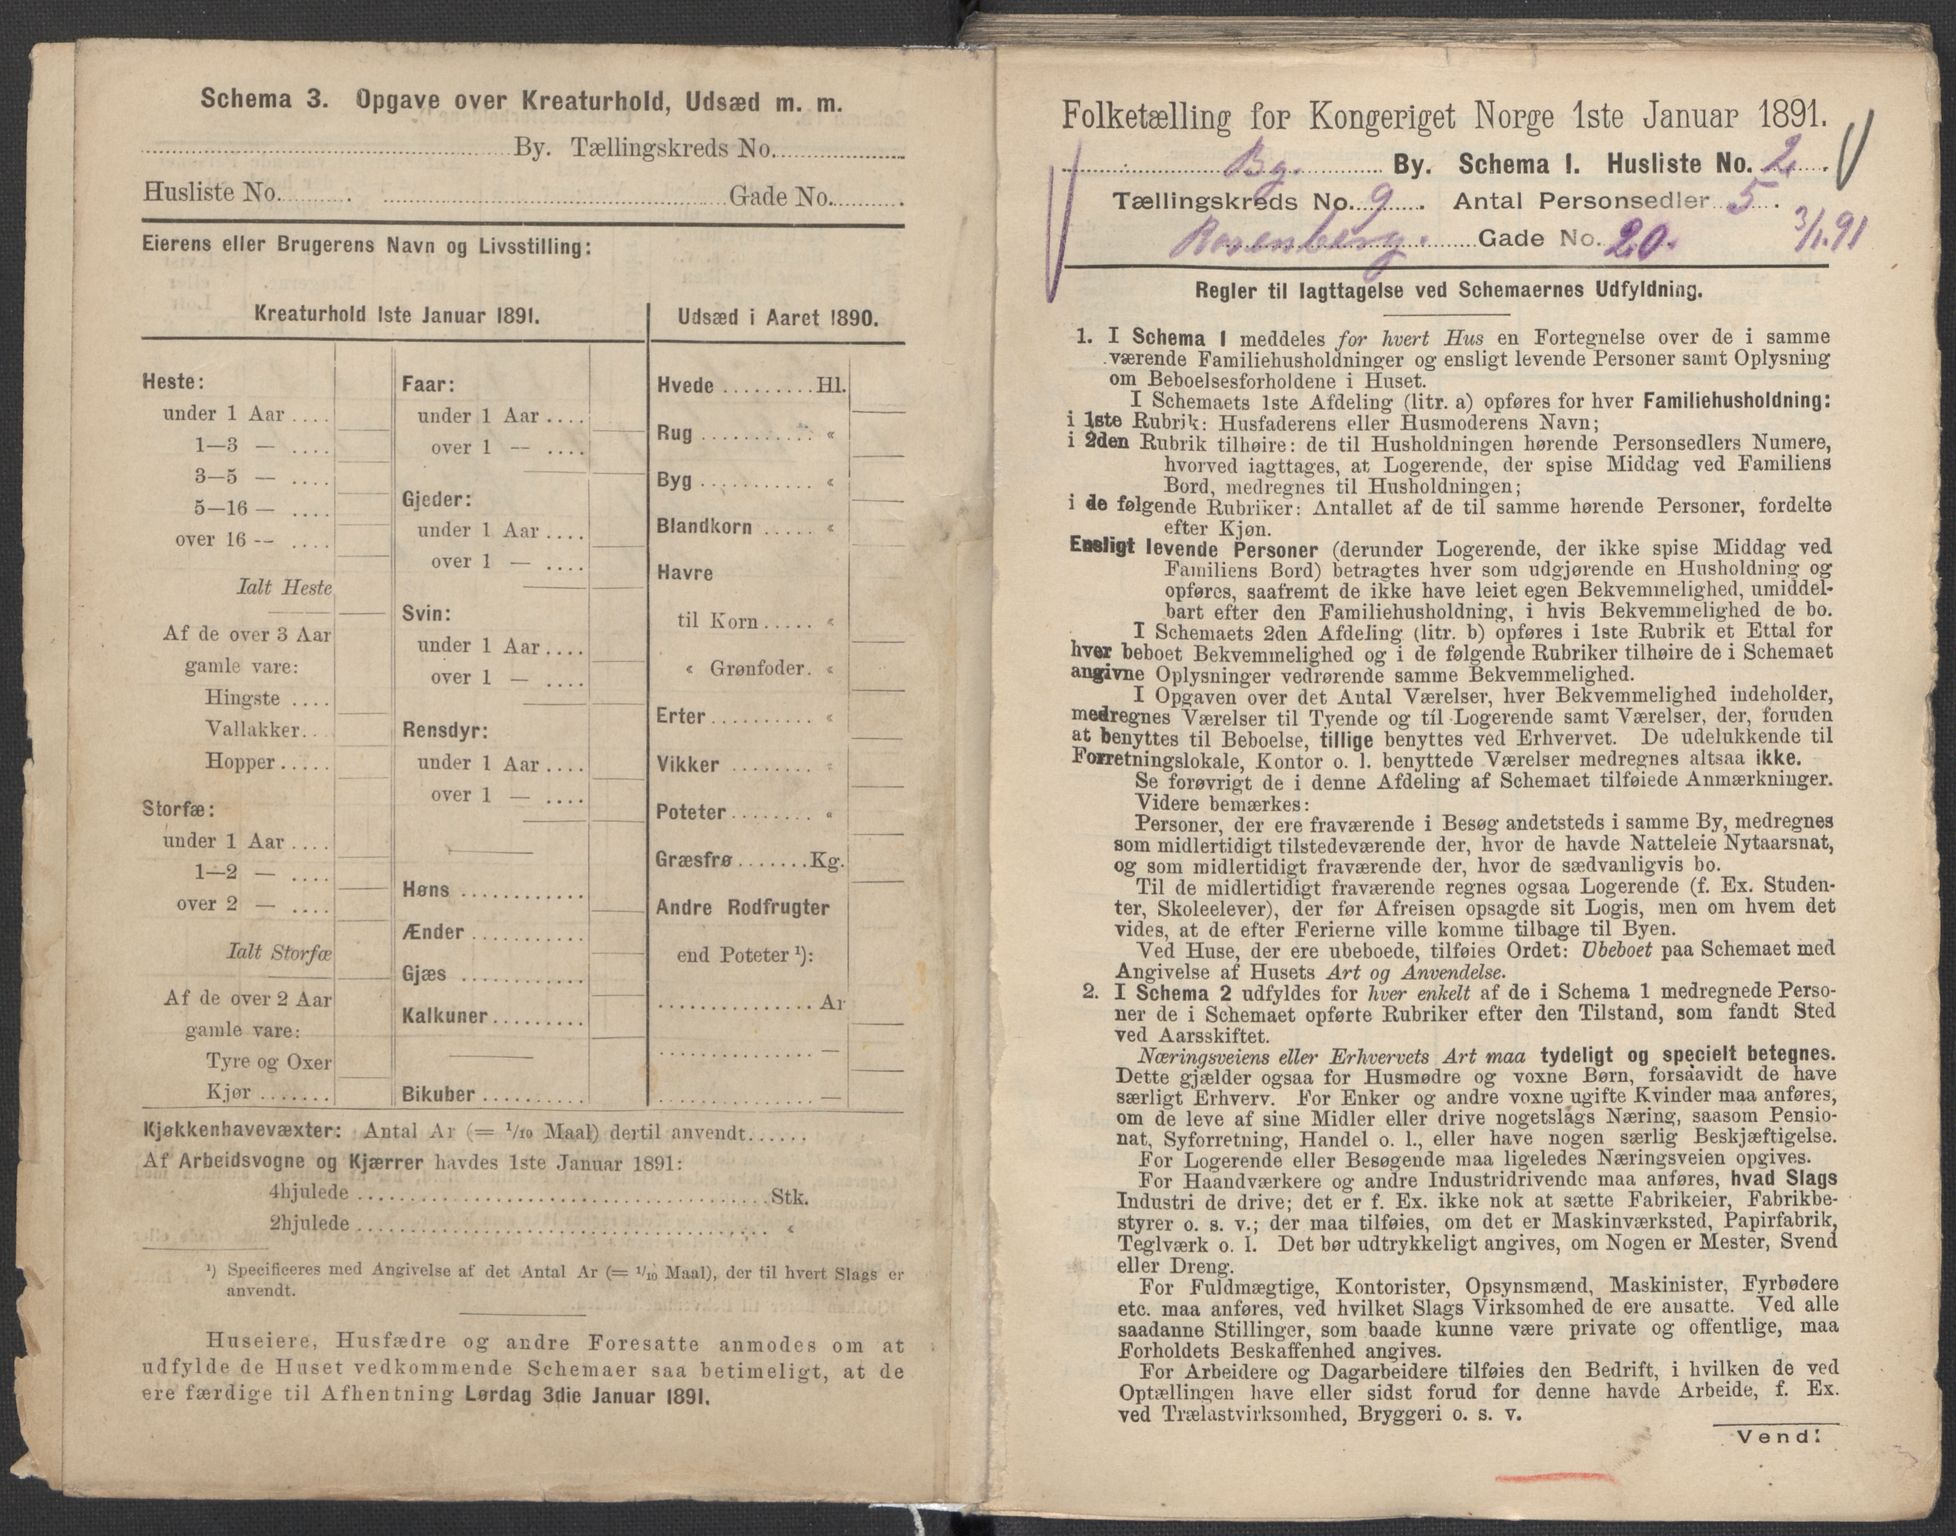 Schema 3. Opgave over Kreaturhold, Udsæd m. m.
By. Tællingskreds No.
Husliste No. Gade No.
Eierens eller Brugerens Navn og Livsstilling:
Kreaturhold 1ste Januar 1891.
Heste:
under 1 Aar
1—3 —
3—5 —
5—16 —
over 16 —
Ialt Heste
Af de over 3 Aar
gamle vare:
Hingste
Vallakker
Hopper
Storfæ:
under 1 Aar
1—2 —
over 2 —
Ialt Storfæ
Af de over 2 Aar
gamle vare:
Tyre og Oxer
Kjør
Faar:
under 1 Aar
over 1 —
Gjeder:
under 1 Aar
over 1 —
Svin:
under 1 Aar
over 1 —
Rensdyr:
under 1 Aar
over 1 —
Høns
Ænder
Gjæs
Kalkuner
Bikuber
Udsæd i Aaret 1890.
Hvede Hl.
Rug «
Byg «
Blandkorn «
Havre
til Korn «
« Grønfoder. «
Erter «
Vikker «
Poteter «
Græsfrø Kg.
Andre Rodfrugter
end Poteter ¹):
Ar
—
—
Kjøkkenhavevæxter: Antal Ar (= 1/10 Maal) dertil anvendt
Af Arbeidsvogne og Kjærrer havdes 1ste Januar 1891:
4hjulede Stk.
2hjulede «
¹) Specificeres med Angivelse af det Antal Ar (= 1/10 Maal), der til hvert Slags er
anvendt.
Huseiere, Husfædre og andre Foresatte anmodes om at
udfylde de Huset vedkommende Schemaer saa betimeligt, at de
ere færdige til Afhentning Lørdag 3die Januar 1891.
Folketælling for Kongeriget Norge 1ste Januar 1891.
By. Schema I. Husliste No. 2
Tællingskreds No. 9. Antal Personsedler 5.
Rosenberg. Gade No. 20. 3/1.91
Regler til Iagttagelse ved Schemaernes Udfyldning.
1. I Schema 1 meddeles for hvert Hus en Fortegnelse over de i samme
værende Familiehusholdninger og ensligt levende Personer samt Oplysning
om Beboelsesforholdene i Huset.
I Schemaets 1ste Afdeling (litr. a) opføres for hver Familiehusholdning:
i 1ste Rubrik: Husfaderens eller Husmoderens Navn;
i 2den Rubrik tilhøire: de til Husholdningen hørende Personsedlers Numere,
hvorved iagttages, at Logerende, der spise Middag ved Familiens
Bord, medregnes til Husholdningen;
i de følgende Rubriker: Antallet af de til samme hørende Personer, fordelte
efter Kjøn.
Ensligt levende Personer (derunder Logerende, der ikke spise Middag ved
Familiens Bord) betragtes hver som udgjørende en Husholdning og
opføres, saafremt de ikke have leiet egen Bekvemmelighed, umiddel-
bart efter den Familiehusholdning, i hvis Bekvemmelighed de bo.
I Schemaets 2den Afdeling (litr. b) opføres i 1ste Rubrik et Ettal for
hver beboet Bekvemmelighed og i de følgende Rubriker tilhøire de i Schemaet
angivne Oplysninger vedrørende samme Bekvemmelighed.
I Opgaven over det Antal Værelser, hver Bekvemmelighed indeholder,
medregnes Værelser til Tyende og til Logerende samt Værelser, der, foruden
at benyttes til Beboelse, tillige benyttes ved Erhvervet. De udelukkende til
Forretningslokale, Kontor o. l. benyttede Værelser medregnes altsaa ikke.
Se forøvrigt de i denne Afdeling af Schemaet tilføiede Anmærkninger.
Videre bemærkes:
Personer, der ere fraværende i Besøg andetsteds i samme By, medregnes
som midlertidigt tilstedeværende der, hvor de havde Natteleie Nytaarsnat,
og som midlertidigt fraværende der, hvor de sædvanligvis bo.
Til de midlertidigt fraværende regnes ogsaa Logerende (f. Ex. Studen-
ter, Skoleelever), der før Afreisen opsagde sit Logis, men om hvem det
vides, at de efter Ferierne ville komme tilbage til Byen.
Ved Huse, der ere ubeboede, tilføies Ordet: Ubeboet paa Schemaet med
Angivelse af Husets Art og Anvendelse.
2. I Schema 2 udfyldes for hver enkelt af de i Schema 1 medregnede Perso-
ner de i Schemaet opførte Rubriker efter den Tilstand, som fandt Sted
ved Aarsskiftet.
Næringsveiens eller Erhvervets Art maa tydeligt og specielt betegnes.
Dette gjælder ogsaa for Husmødre og voxne Børn, forsaavidt de have
særligt Erhverv. For Enker og andre voxne ugifte Kvinder maa anføres,
om de leve af sine Midler eller drive nogetslags Næring, saasom Pensio-
nat, Syforretning, Handel o. l., eller have nogen særlig Beskjæftigelse.
For Logerende eller Besøgende maa ligeledes Næringsveien opgives.
For Haandværkere og andre Industridrivende maa anføres, hvad Slags
Industri de drive; det er f. Ex. ikke nok at sætte Fabrikeier, Fabrikbe-
styrer o. s. v.; der maa tilføies, om det er Maskinværksted, Papirfabrik,
Teglværk o. l. Det bør udtrykkeligt angives, om Nogen er Mester, Svend
eller Dreng.
For Fuldmægtige, Kontorister, Opsynsmænd, Maskinister, Fyrbødere
etc. maa anføres, ved hvilket Slags Virksomhed de ere ansatte. Ved alle
saadanne Stillinger, som baade kunne være private og offentlige, maa
Forholdets Beskaffenhed angives.
For Arbeidere og Dagarbeidere tilføies den Bedrift, i hvilken de ved
Optællingen have eller sidst forud for denne havde Arbeide, f. Ex.
ved Trælastvirksomhed, Bryggeri o. s. v.
Vend!